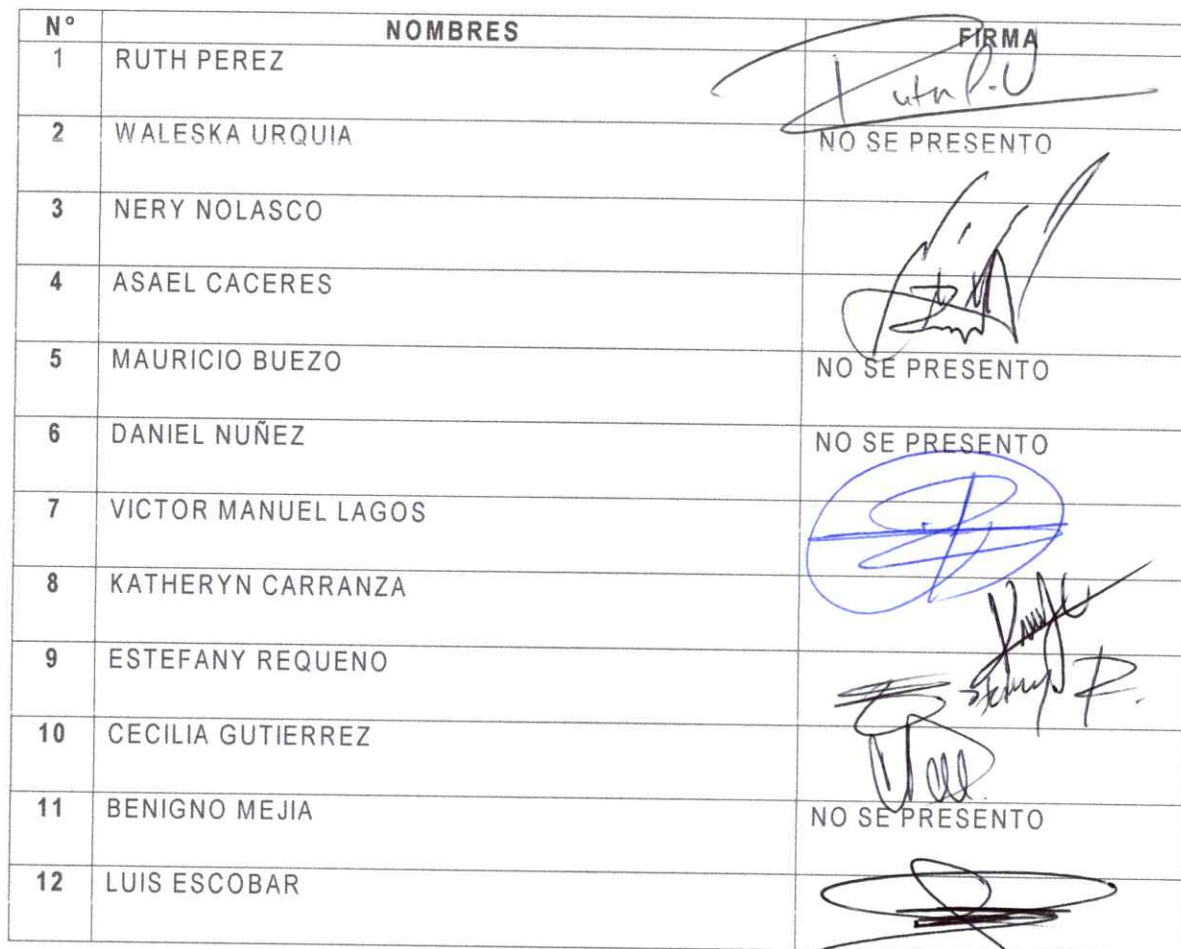 N° NOMBRES FIRMA
1 RUTH PEREZ
2 WALESKA URQUIA NO SE PRESENTO
3 NERY NOLASCO
4 ASAEL CACERES
5 MAURICIO BUEZO NO SE PRESENTO
6 DANIEL NUÑEZ NO SE PRESENTO
7 VICTOR MANUEL LAGOS
8 KATHERYN CARRANZA
9 ESTEFANY REQUENO
10 CECILIA GUTIERREZ
11 BENIGNO MEJIA NO SE PRESENTO
12 LUIS ESCOBAR